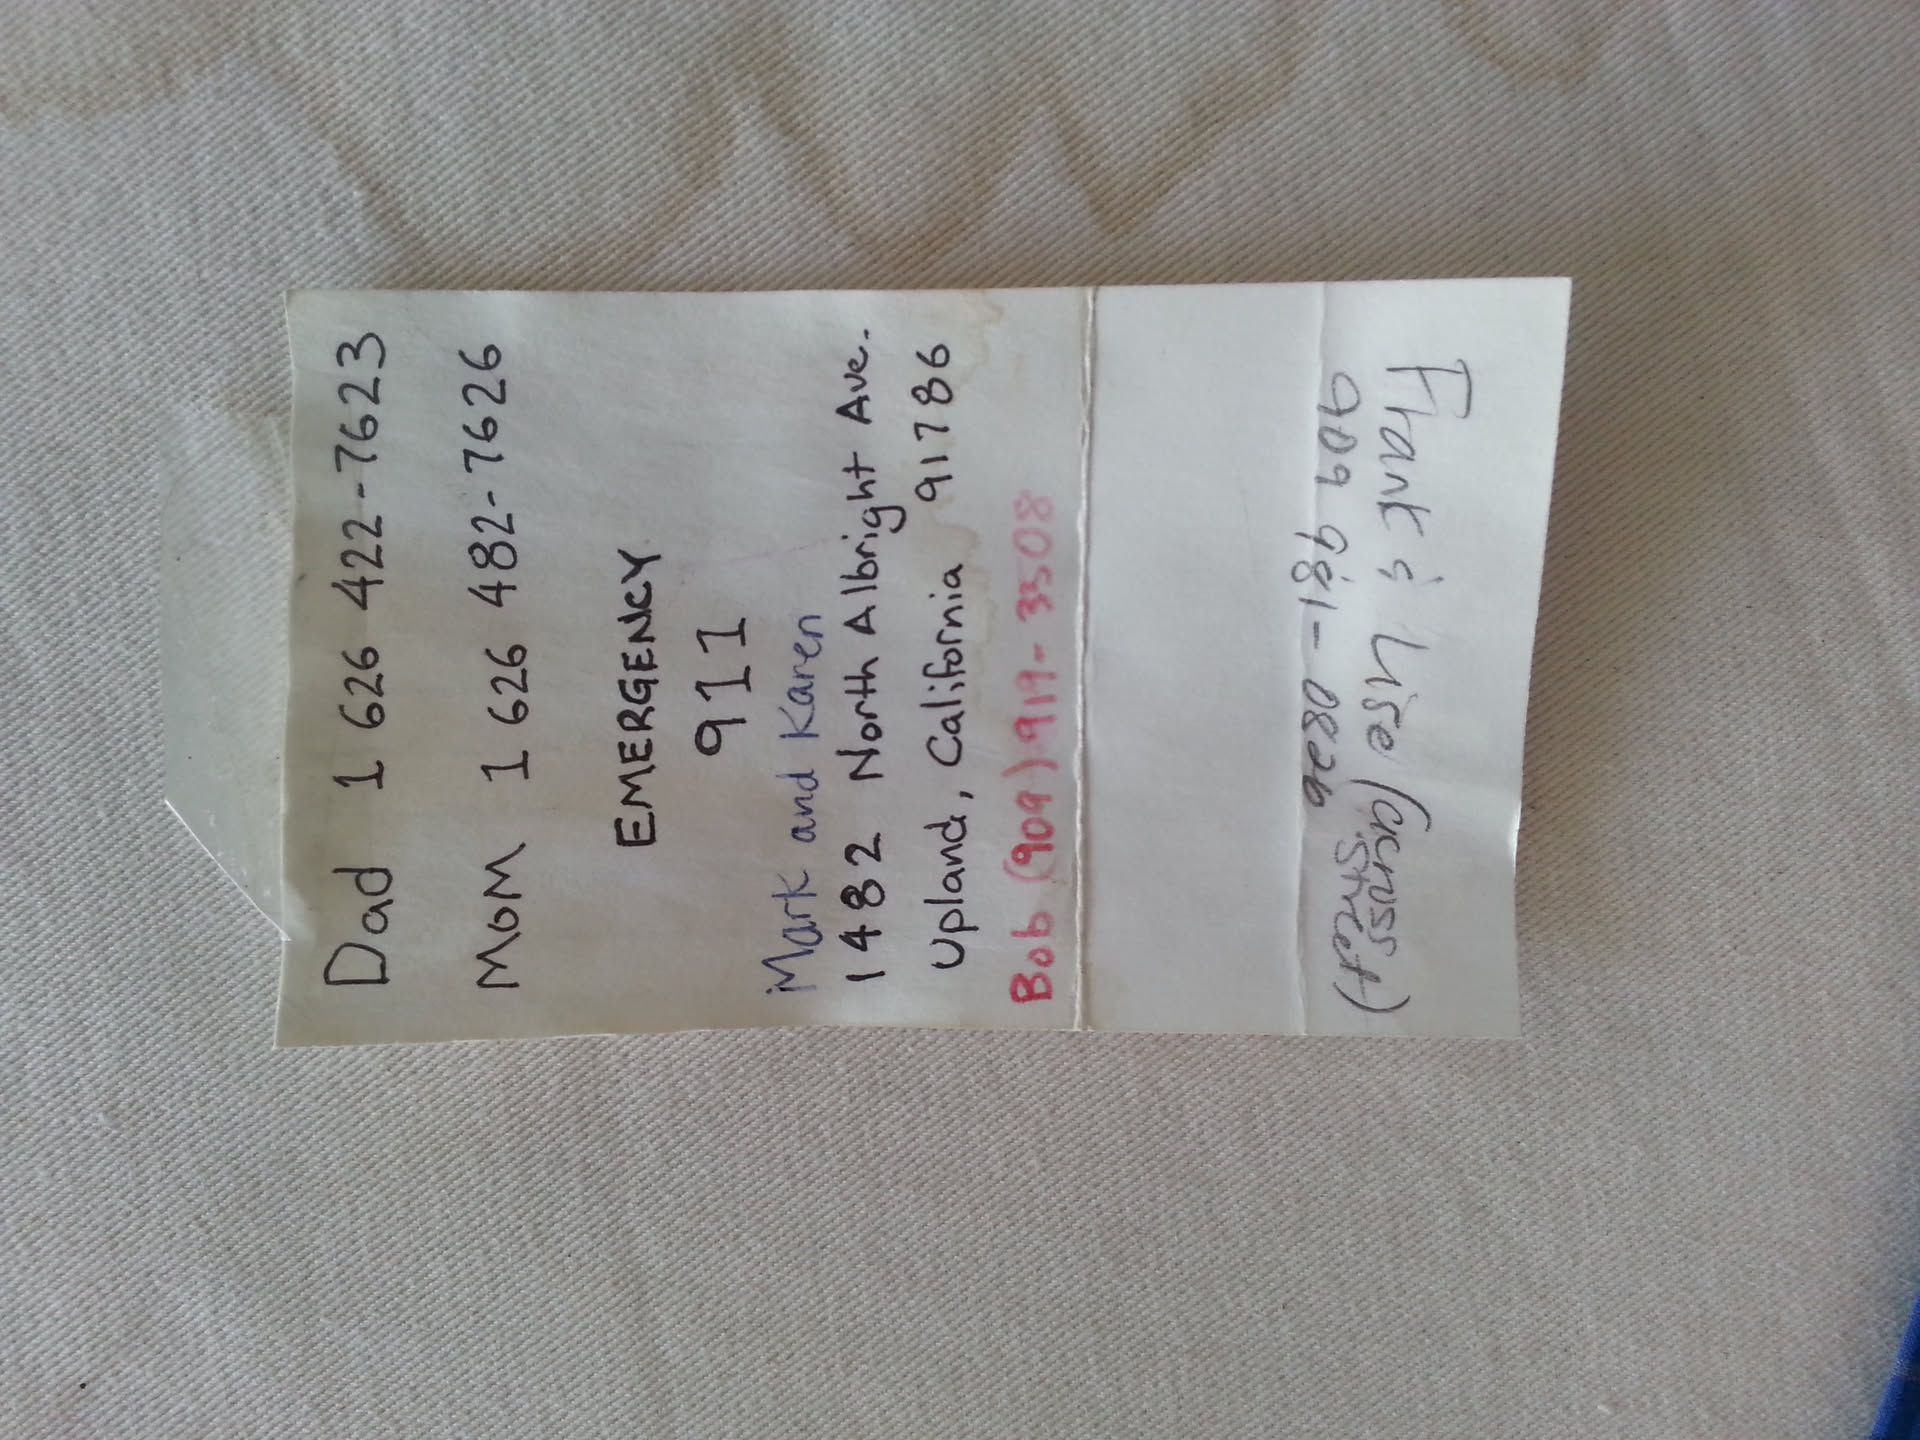 Dad 1 626 422-7623
MOM 1 626 482-7626
EMERGENCY
911
Mark and Karen
1482 North Albright Ave.
Upland, California 91786
Bob (909) 919-3508
Frank & Lise (across
street)
909 981-0826